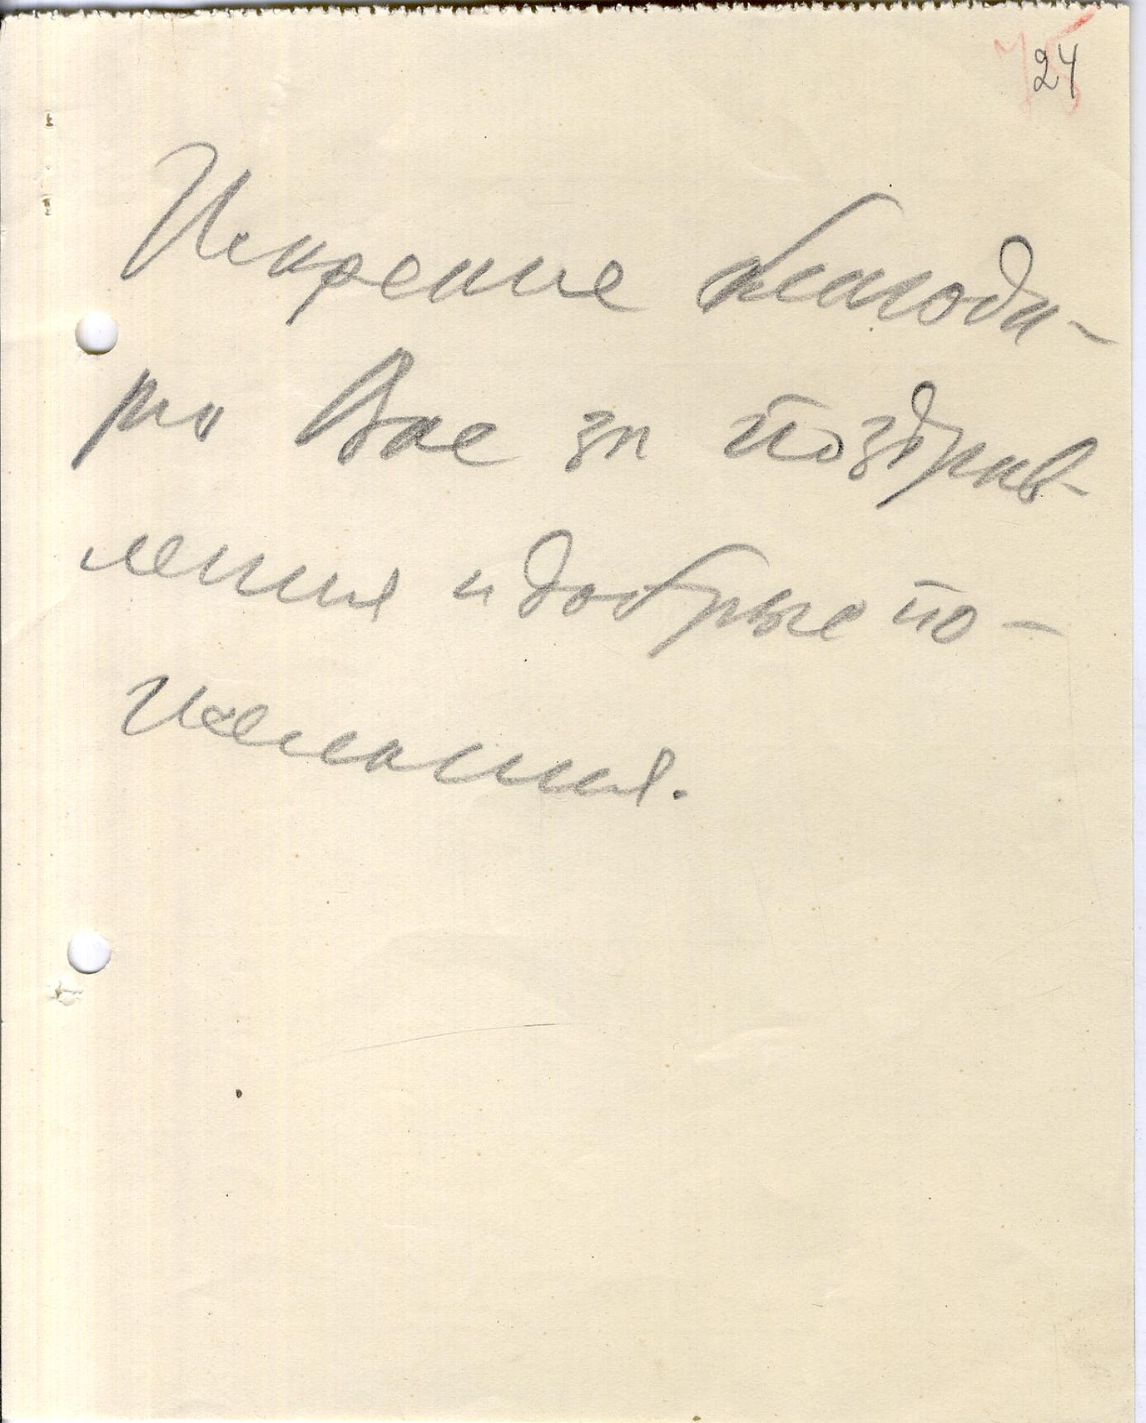 75
24
Искренне благода-
рю Вас за поздрав-
ления и добрые по-
желания.